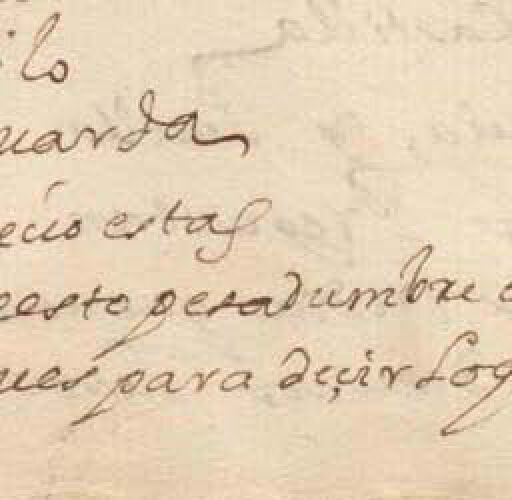 ilo
uarda
ecio estas
eesto pesadumbre
ues para deçir loq